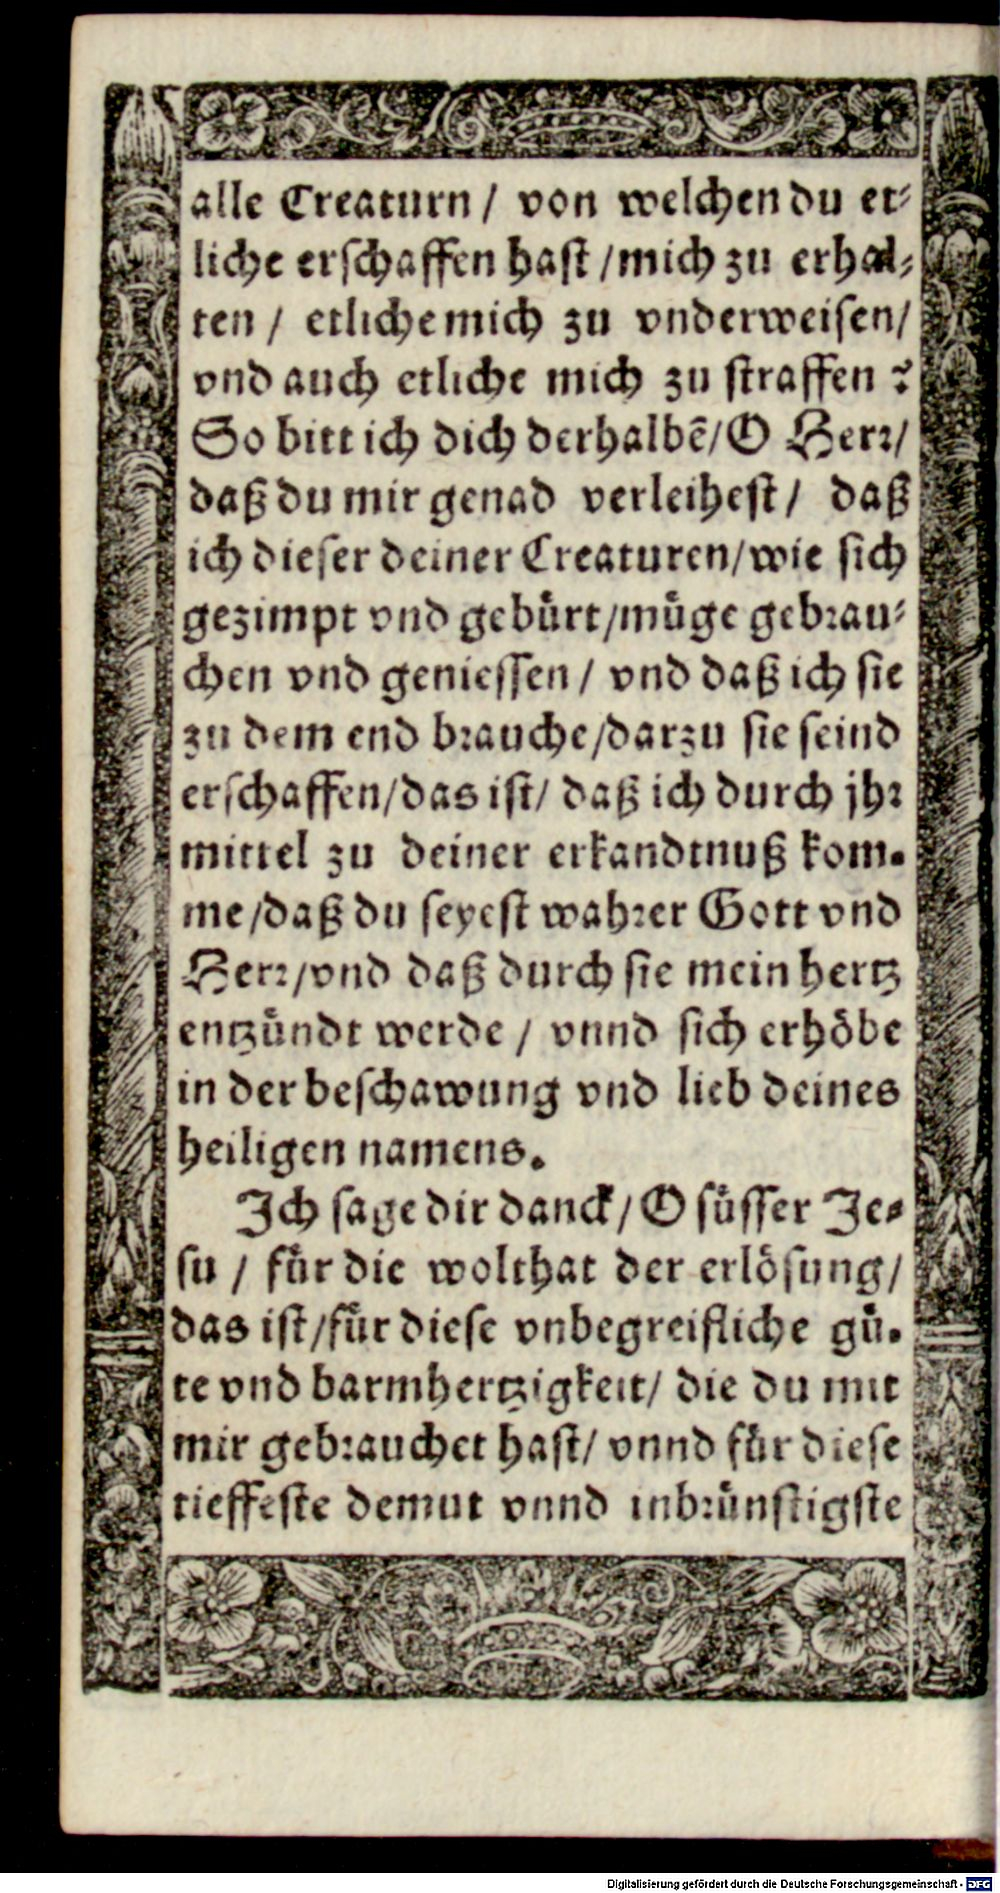 alle Creaturn / von welchen du et⸗
liche erschaffen hast / mich zu erhal⸗
ten / etliche mich zu vnderweisen /
vnd auch etliche mich zu straffen?
So bitt ich dich derhalbē / O Herr /
daß du mir genad verleihest / daß
ich dieser deiner Creaturen / wie sich
gezimpt vnd gebürt / müge gebrau⸗
chen vnd geniessen / vnd daß ich sie
zu dem end brauche / darzu sie seind
erschaffen / das ist / daß ich durch jhr
mittel zu deiner erkandtnuß kom⸗
me / daß du seyest wahrer Gott vnd
Herr / vnd daß durch sie mein hertz
entzündt werde / vnnd sich erhöbe
in der beschawung vnd lieb deines
heiligen namens.
Ich sage dir danck / O süsser Je⸗
su / für die wolthat der erlösung /
das ist / für diese vnbegreifliche gü⸗
te vnd barmhertzigkeit / die du mit
mir gebrauchet hast / vnnd für diese
tieffeste demut vnnd inbrünstigste
Digitalisierung gefördert durch die Deutsche Forschungsgemeinschaft - DFG